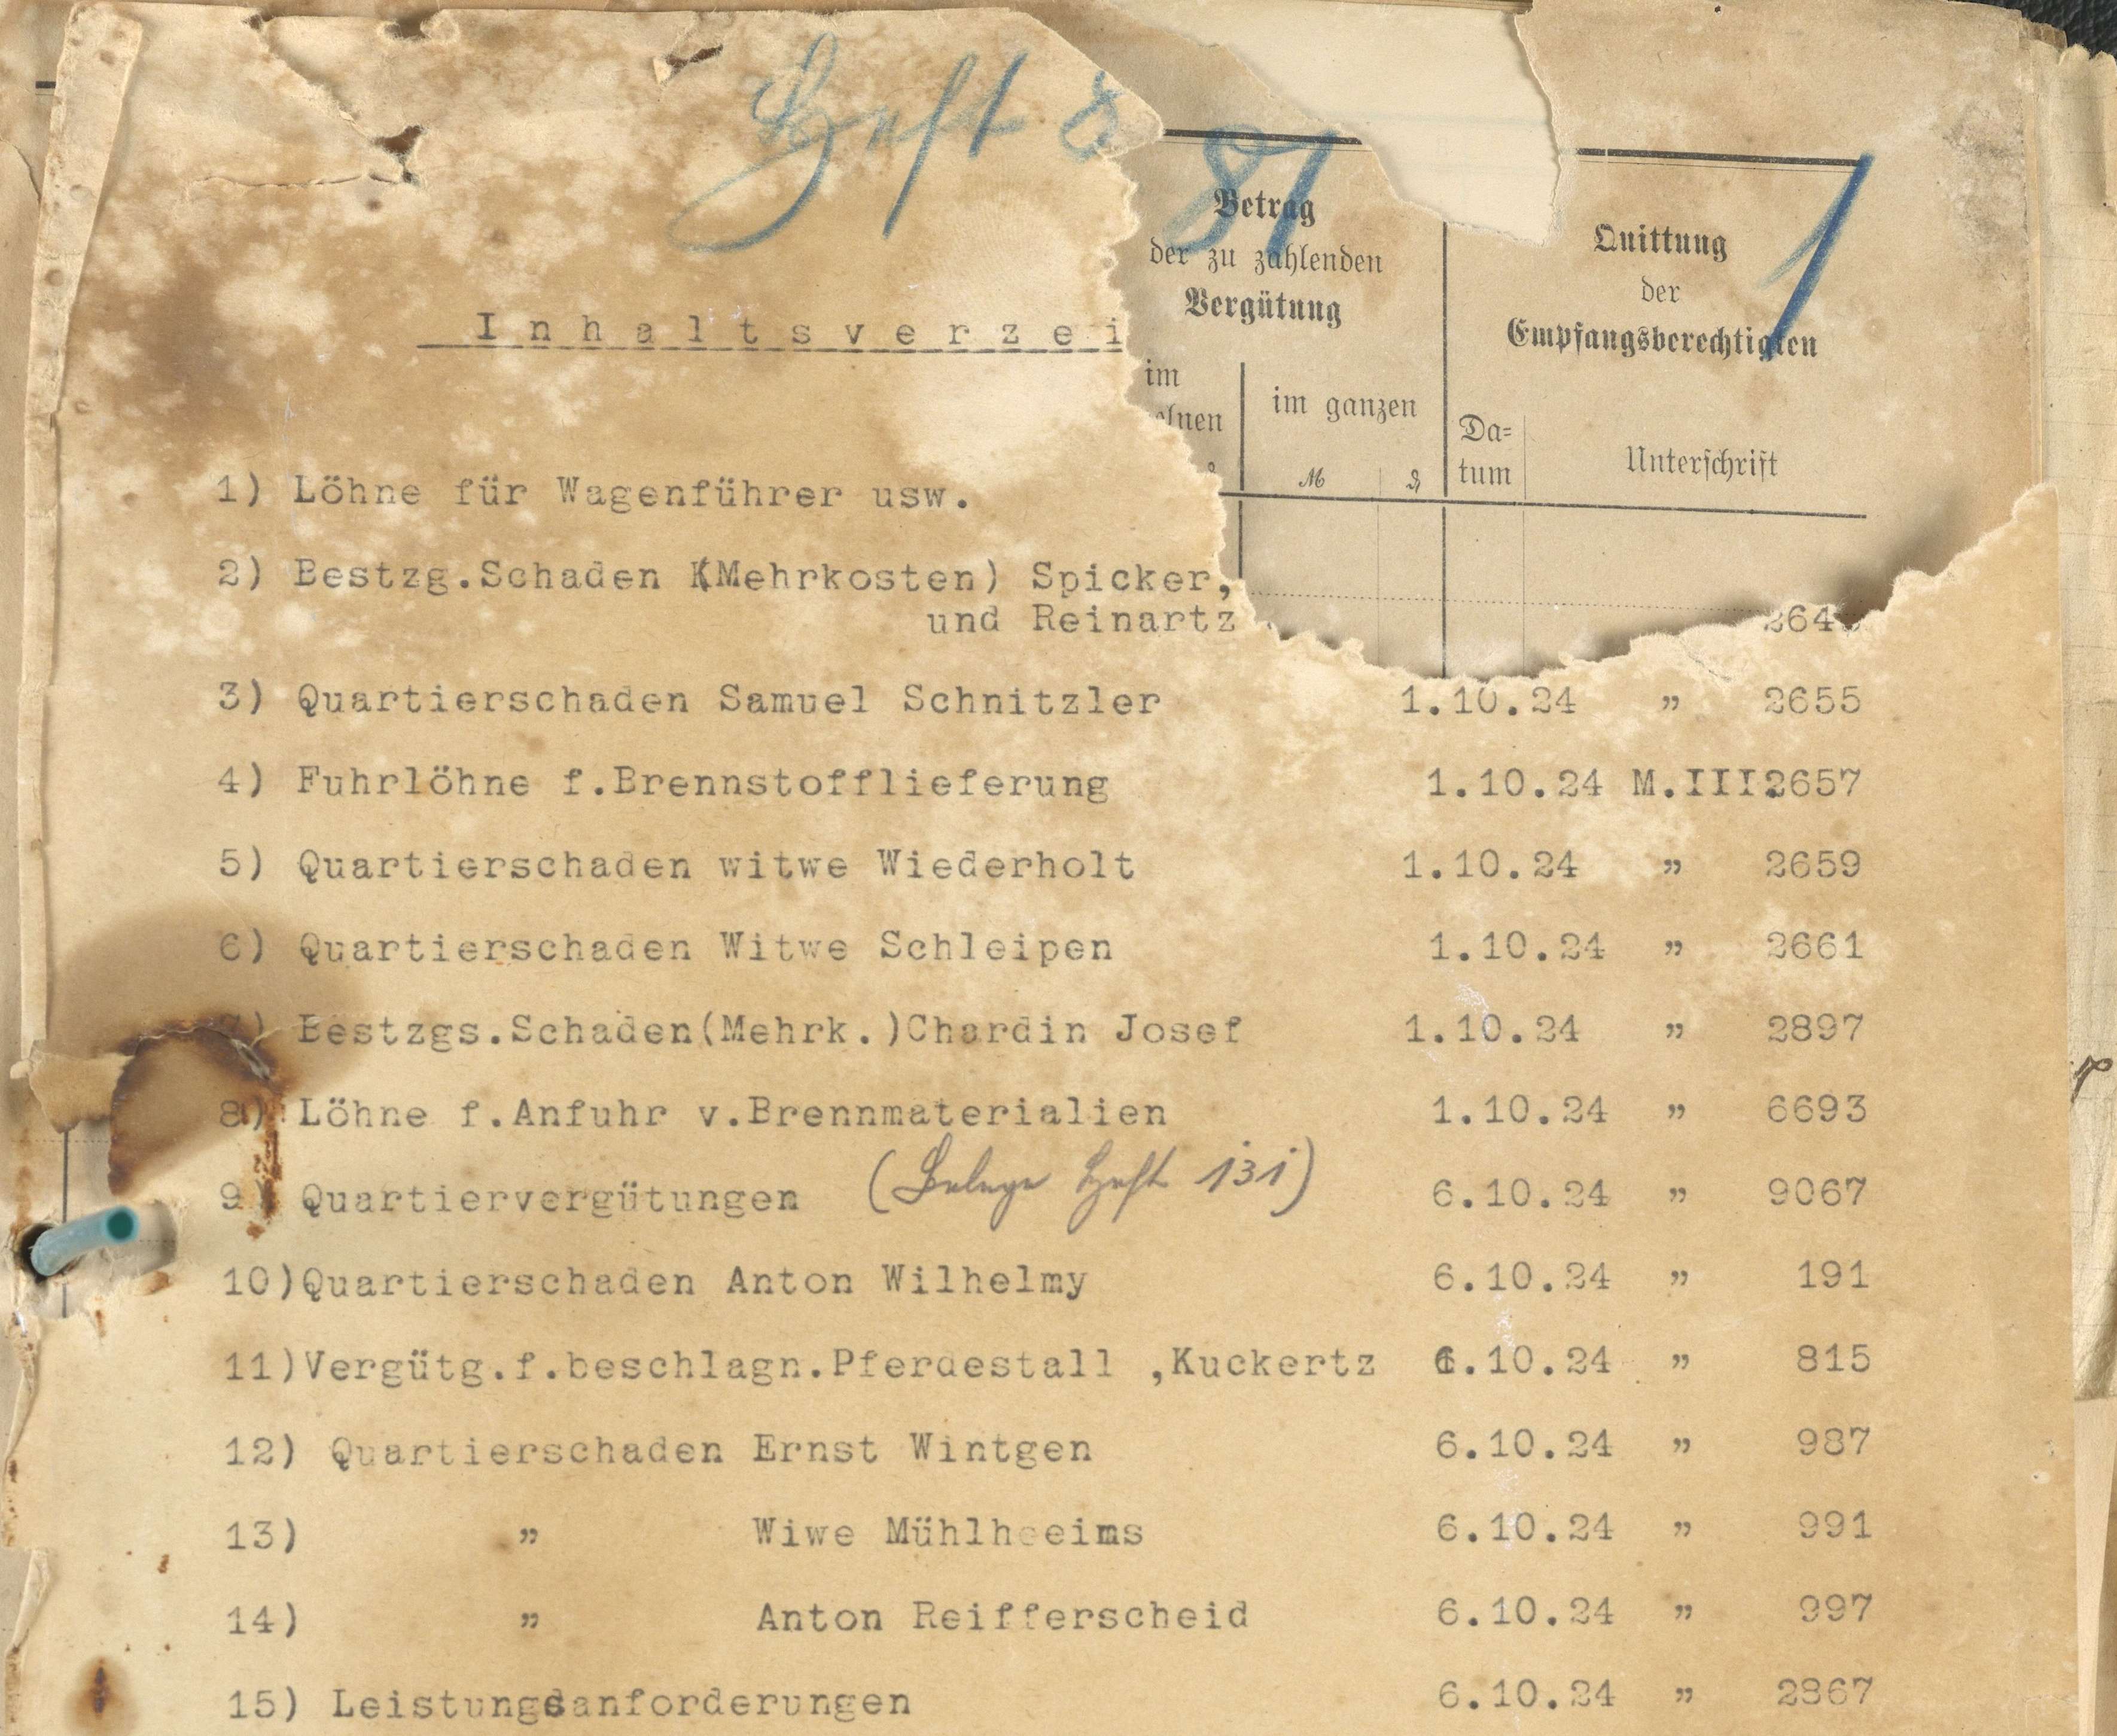 Heft 8
81
1
Betrag
der zu zahlenden
Vergütung
im
elnen
im ganzen
M
Quittung
der
Empfangsberechtigten
Da=
tum
Unterschrift
Inhaltsverzei
1) Löhne für Wagenführer usw.
2) Bestzg.Schaden (Mehrkosten) Spicker,
und Reinartz 264
3) Quartierschaden Samuel Schnitzler 1.10.24 " 2655
4) Fuhrlöhne f.Brennstofflieferung 1.10.24 M.III.2657
5) Quartierschaden witwe Wiederholt 1.10.24 " 2659
6) Quartierschaden Witwe Schleipen 1.10.24 " 2661
7) Bestzgs.Schaden(Mehrk.)Chardin Josef 1.10.24 " 2897
8) Löhne f.Anfuhr v.Brennmaterialien 1.10.24 " 6693
9) Quartiervergütungen (Belege Heft 131) 6.10.24 " 9067
10)Quartierschaden Anton Wilhelmy 6.10.24 " 191
11)Vergütg.f.beschlagn.Pferdestall ,Kuckertz 6.10.24 " 815
12) Quartierschaden Ernst Wintgen 6.10.24 " 987
13) " Wiwe Mühlheeims 6.10.24 " 991
14) " Anton Reifferscheid 6.10.24 " 997
15) Leistungsanforderungen 6.10.24 " 2867